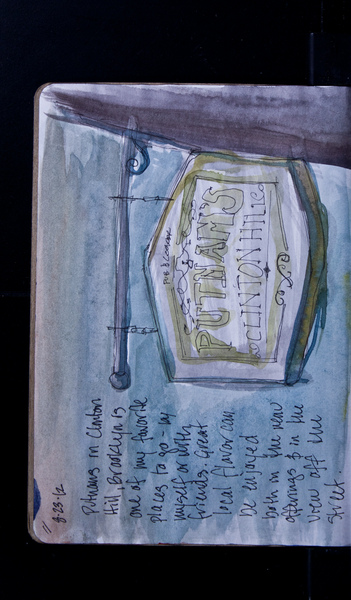 8-23-12
Putnams in Clinton
Hill, Brooklyn is
one of my favorite
places to go - by
myself or with
friends. Great
local flavor can
be enjoyed
both in the
offerings & in the
view off the
street.
PUB & COOKERY
PUTNAM'S
CLINTON HILL